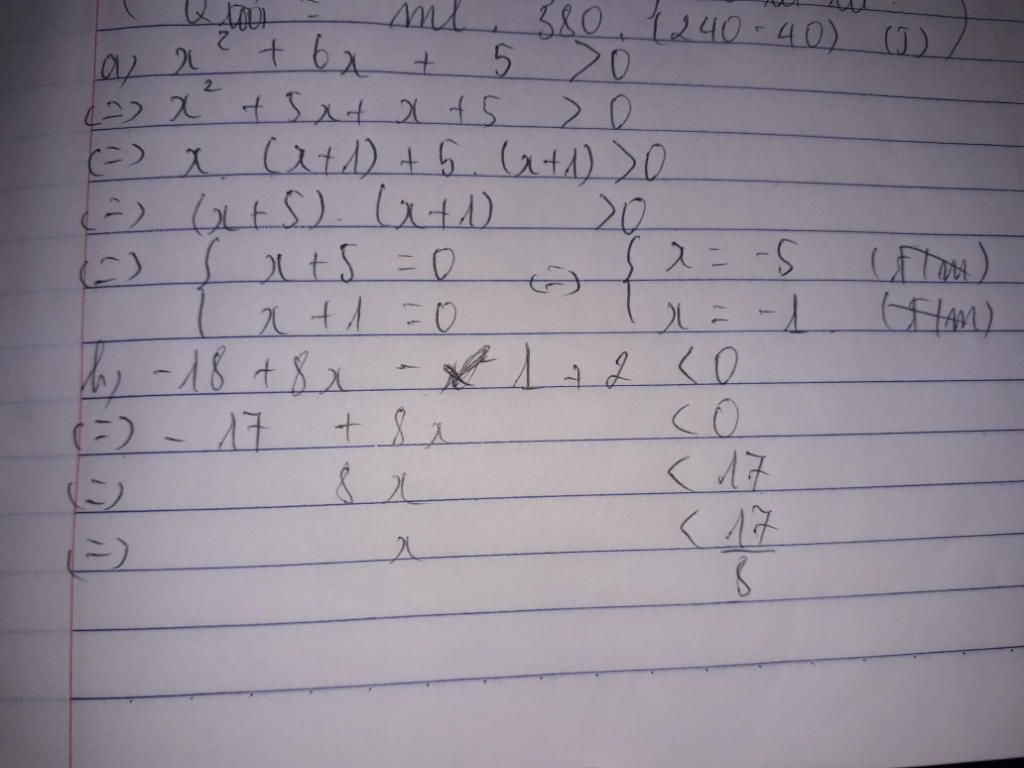 = ml . 380 . (240 - 40) (J) )
a, x² + 6x + 5 > 0
(=) x² + 5x + x + 5 > 0
(=) x . (x+1) + 5 . (x+1) > 0
(=) (x+5) . (x+1) > 0
(=) { x+5 = 0 (=) { x = -5 (T/m)
x+1 = 0 x = -1 (T/m)
b, -18 + 8x - 1 + 2 < 0
(=) - 17 + 8x < 0
(=) 8x < 17
(=) x < 17/8